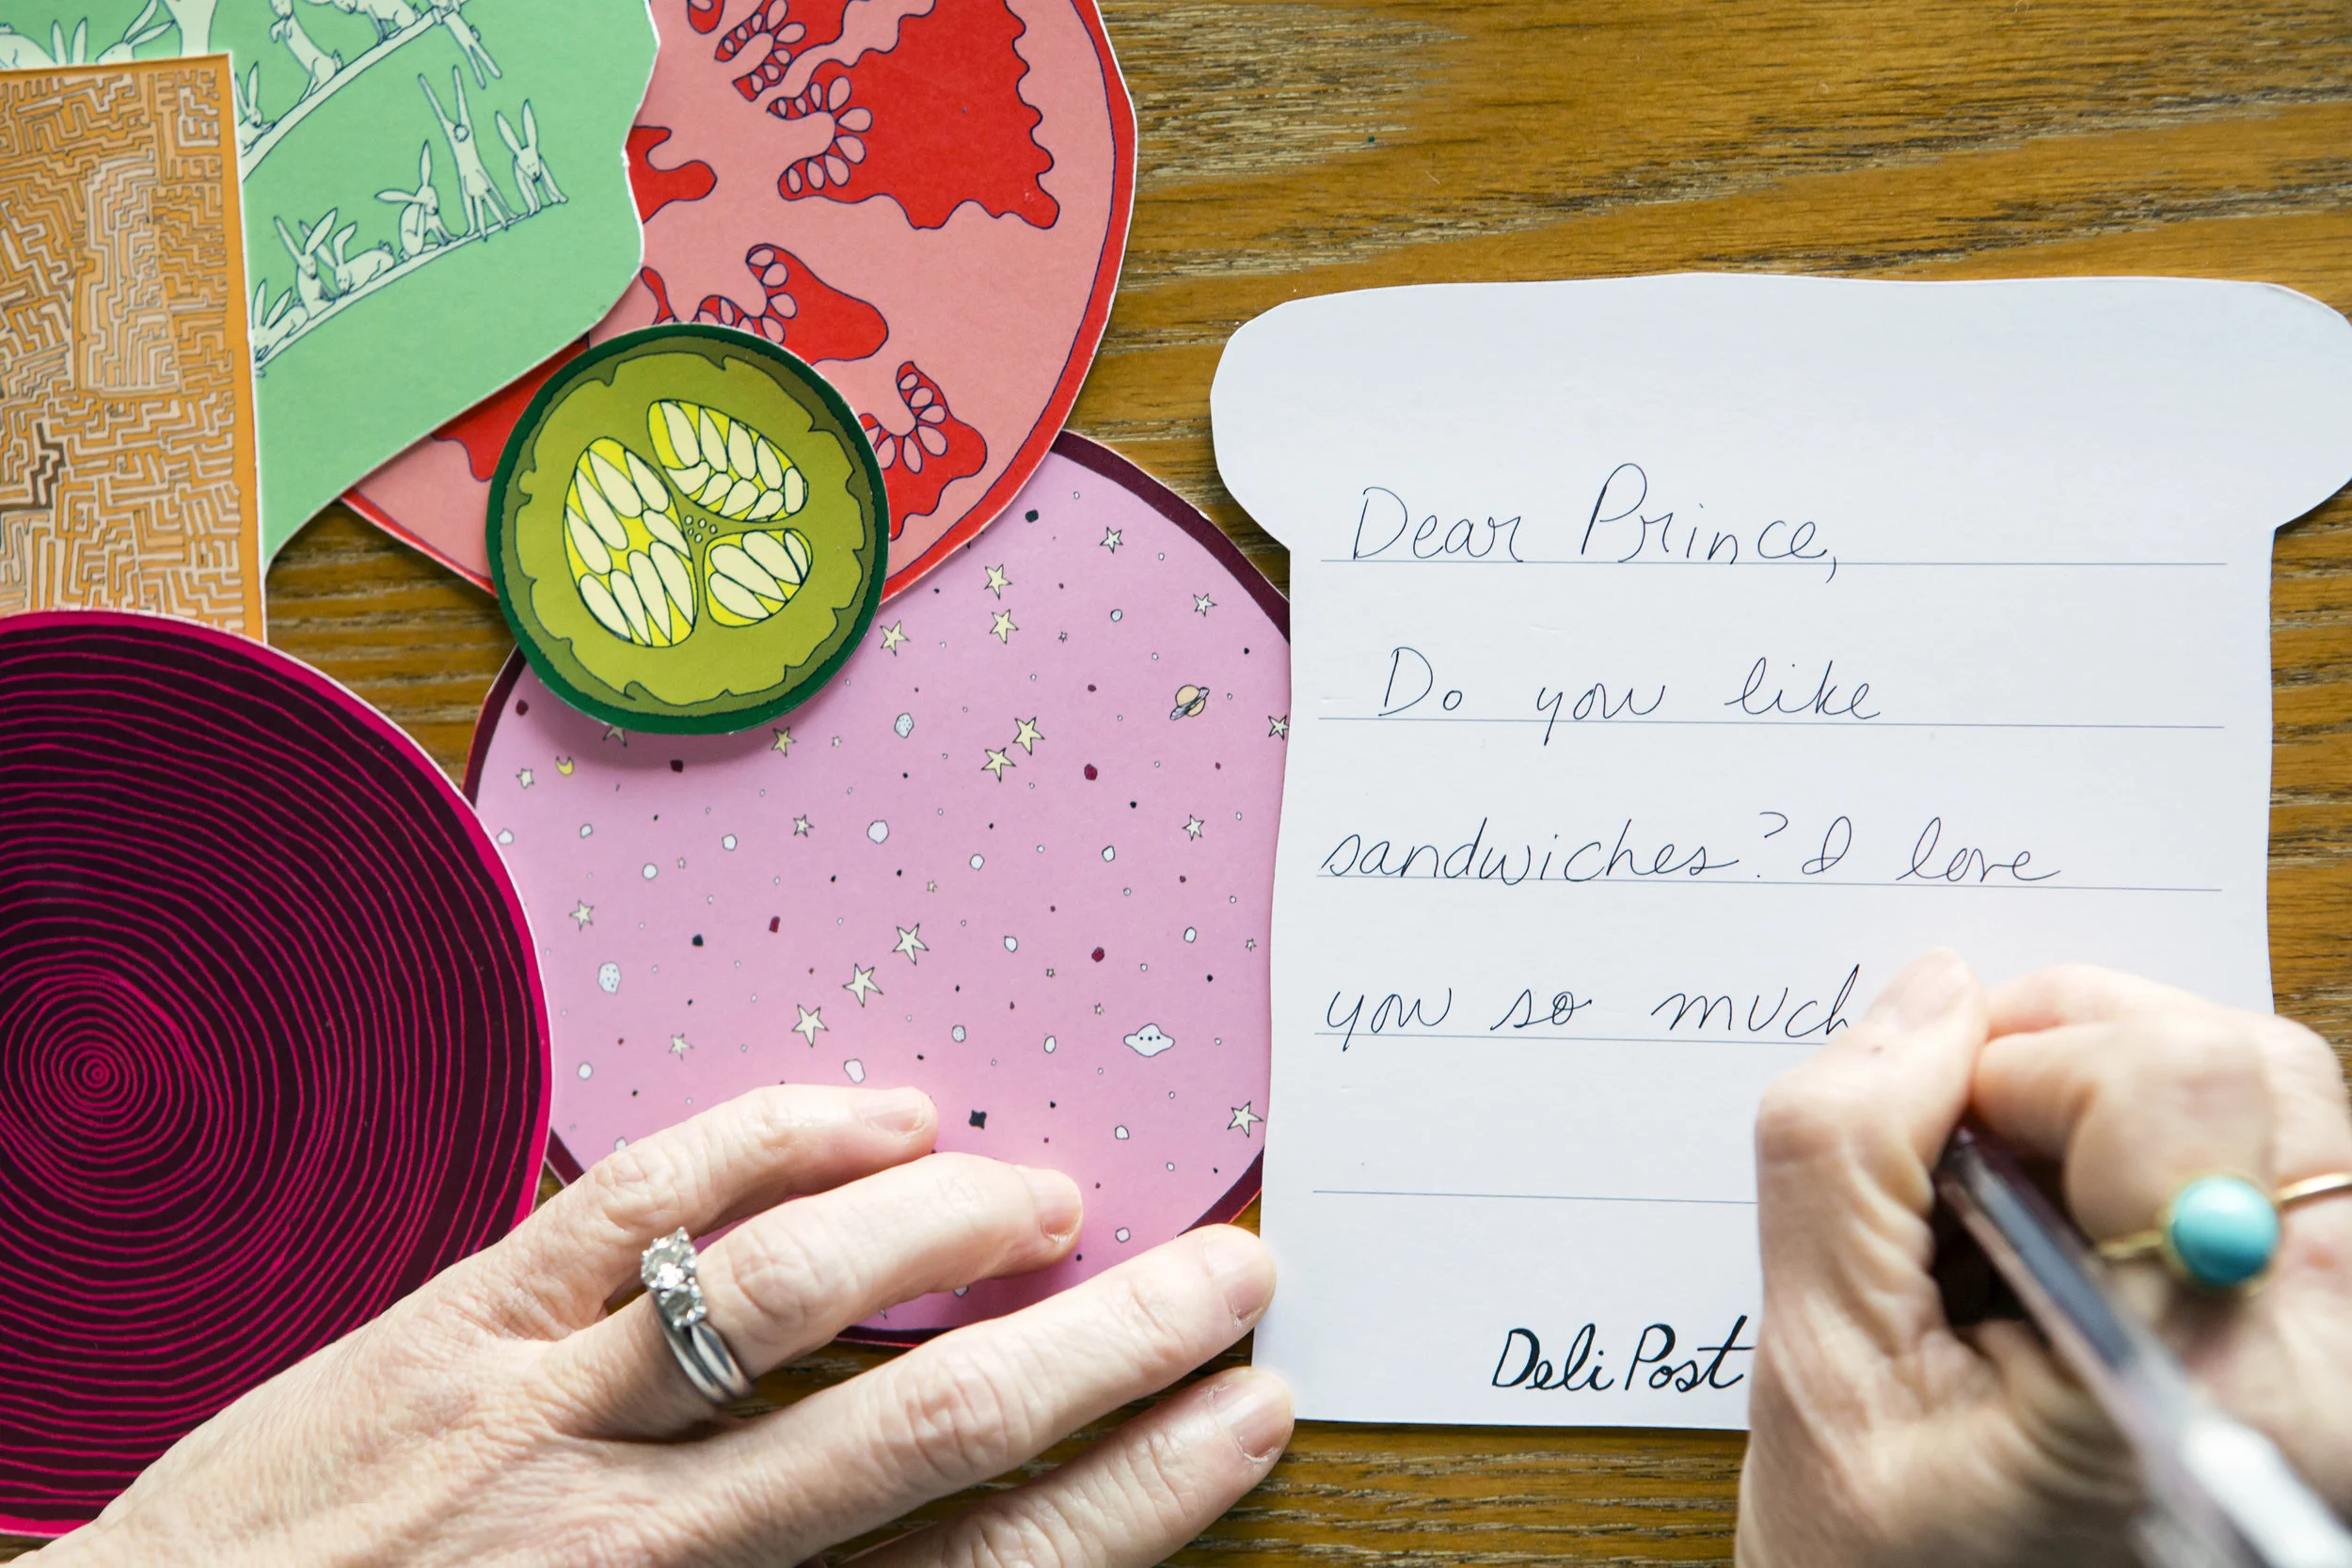 Dear Prince,
Do you like
sandwiches? I love
you so much
Deli Post